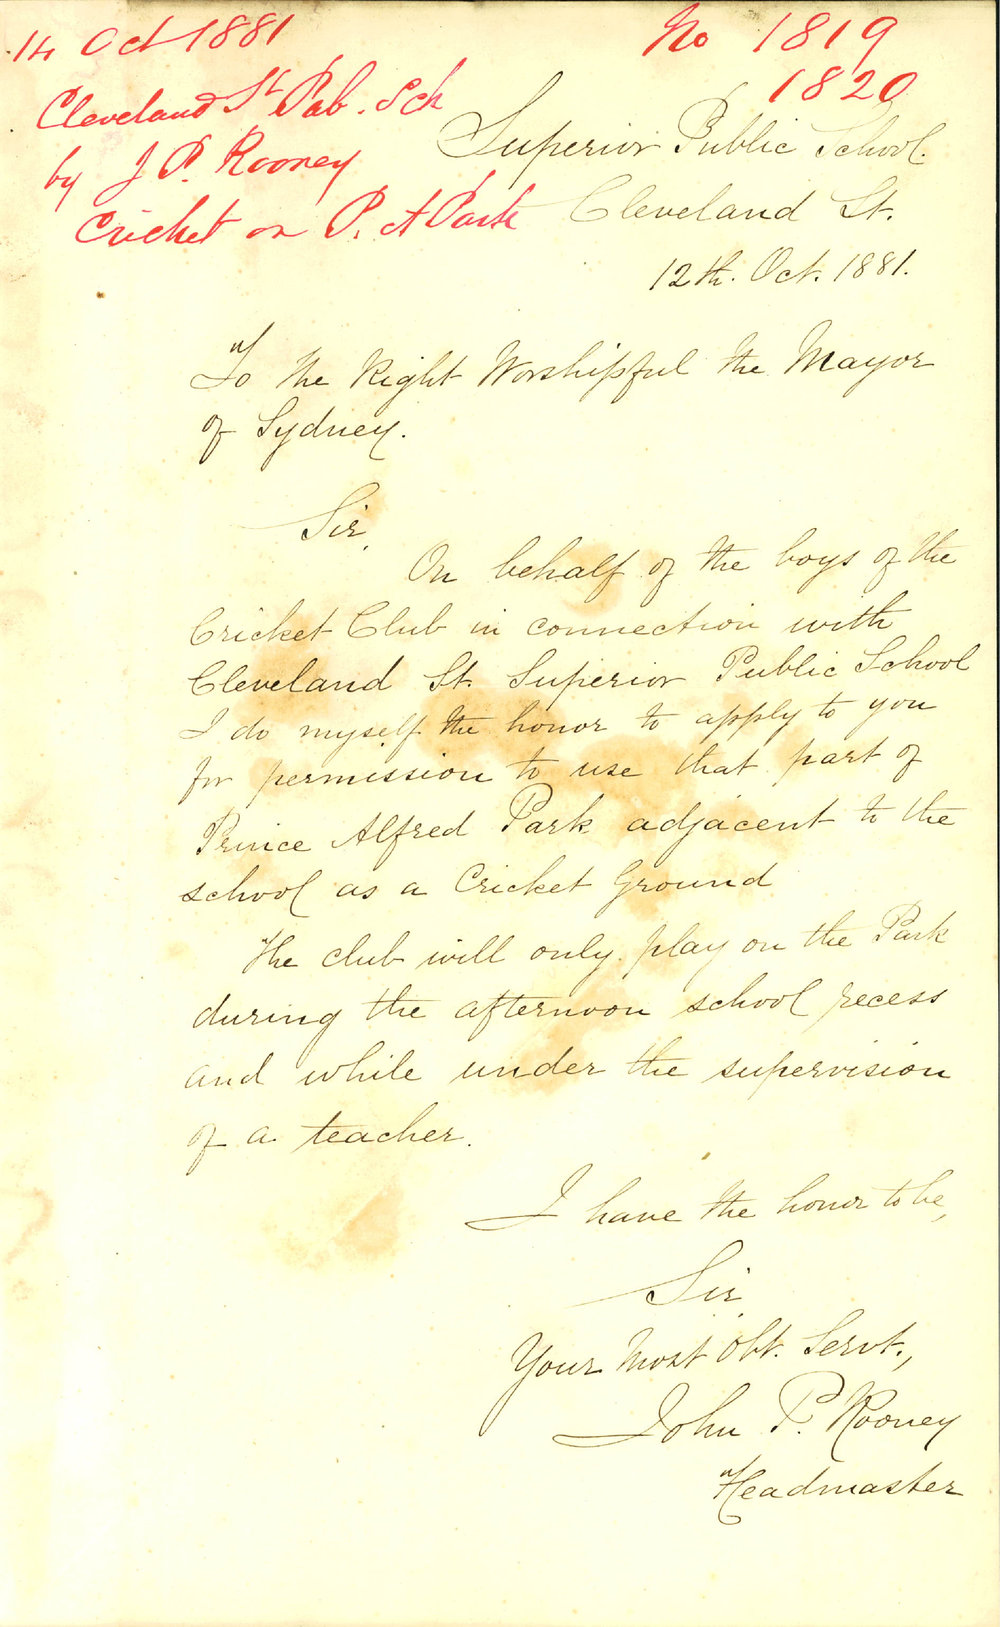 14 Oct 1881
Cleveland St Pub. Sch
by J P. Rooney
Cricket on P. A Park
No 1819
1820
Superior Public School.
Cleveland St.
12th. Oct. 1881.
To the Right Worshipful the Mayor
of Sydney.
Sir,
On behalf of the boys of the
Cricket Club in connection with
Cleveland St. Superior Public School
I do myself the honor to apply to you
for permission to use that part of
Prince Alfred Park adjacent to the
school as a Cricket Ground
The club will only play on the Park
during the afternoon school recess
and while under the supervision
of a teacher.
I have the honor to be,
Sir,
Your Most Obt. Servt.,
John P. Rooney
Headmaster